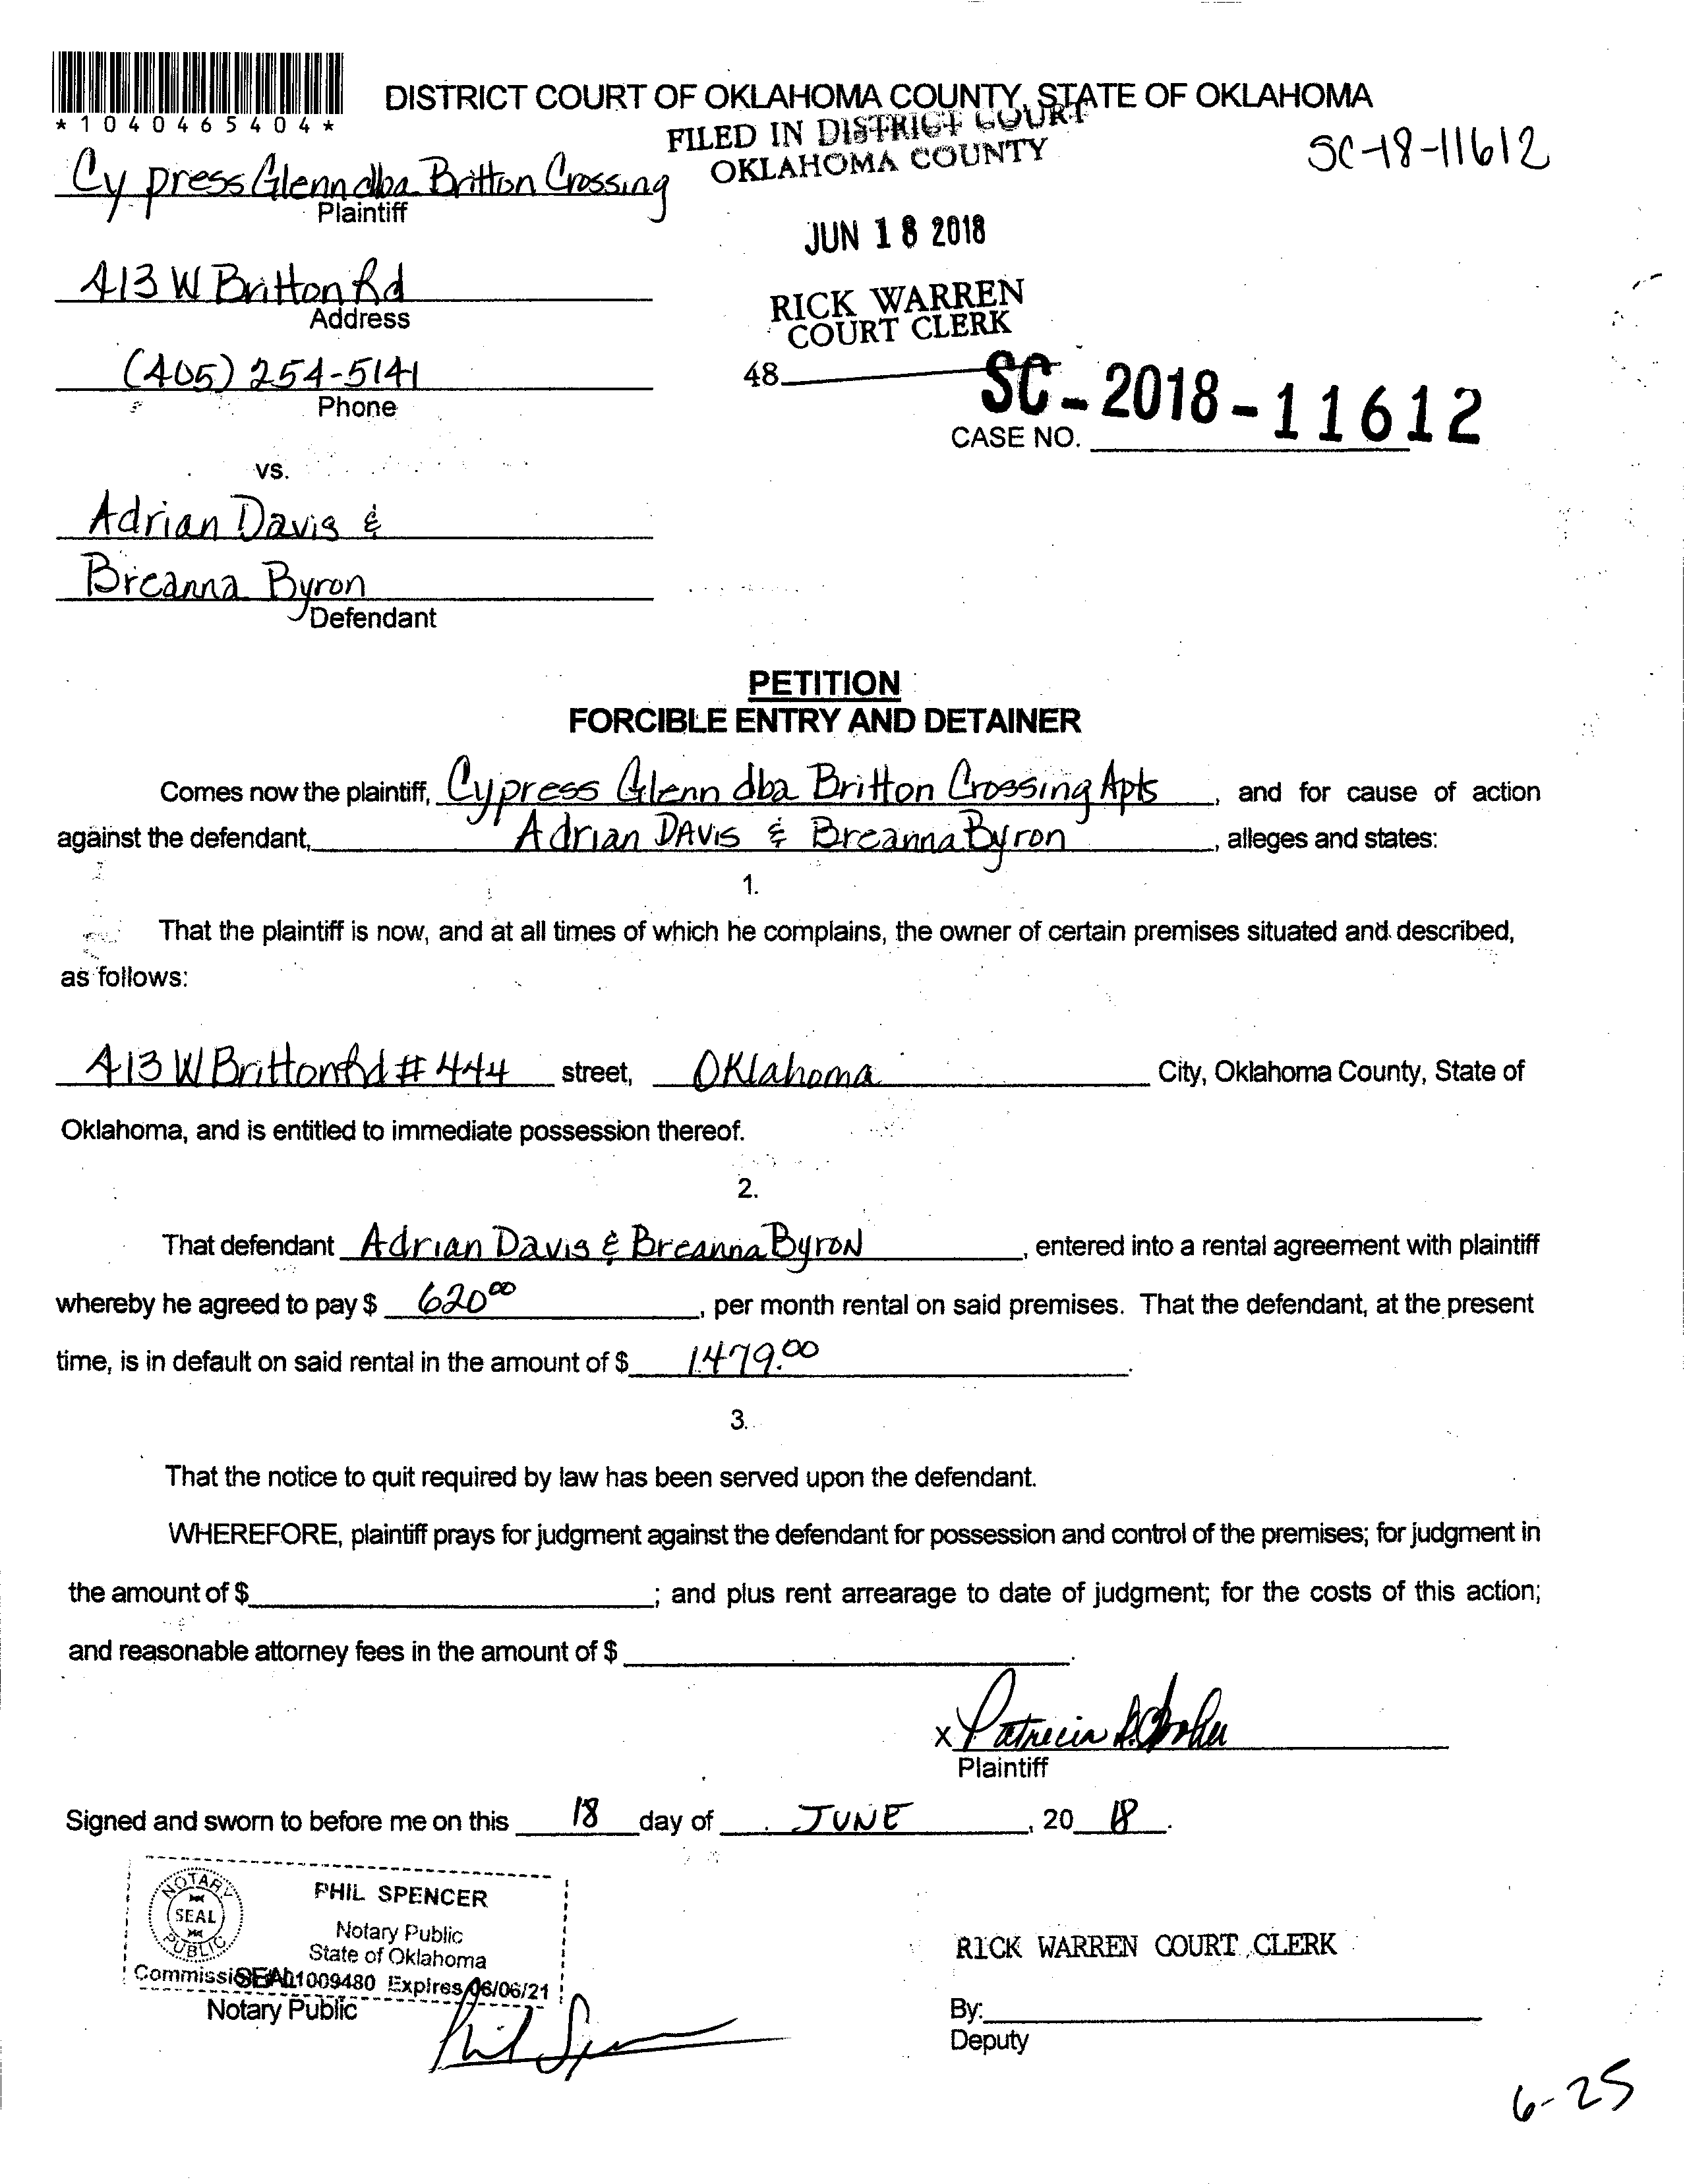 DISTRICT COURT OF OKLAHOMA COUNTY, STATE OF OKLAHOMA
*1040465404*
FILED IN DISTRICT COURT
OKLAHOMA COUNTY
SC-18-11612
Cypress Glenn dba Britton Crossing
Plaintiff
JUN 18 2018
413 W Britton Rd
Address
RICK WARREN
COURT CLERK
(405) 254-5141
Phone
48
SC-2018-11612
CASE NO.
vs.
Adrian Davis &
Breanna Byron
Defendant
PETITION
FORCIBLE ENTRY AND DETAINER
Comes now the plaintiff, Cypress Glenn dba Britton Crossing Apts, and for cause of action
against the defendant, Adrian DAVIS & Breanna Byron, alleges and states:
1.
That the plaintiff is now, and at all times of which he complains, the owner of certain premises situated and described,
as follows:
413 W Britton Rd # 444 street, Oklahoma City, Oklahoma County, State of
Oklahoma, and is entitled to immediate possession thereof.
2.
That defendant Adrian Davis & Breanna Byron, entered into a rental agreement with plaintiff
whereby he agreed to pay $ 620.00, per month rental on said premises. That the defendant, at the present
time, is in default on said rental in the amount of $ 1479.00.
3.
That the notice to quit required by law has been served upon the defendant.
WHEREFORE, plaintiff prays for judgment against the defendant for possession and control of the premises; for judgment in
the amount of $ ; and plus rent arrearage to date of judgment; for the costs of this action;
and reasonable attorney fees in the amount of $ .
X Patricia
Plaintiff
Signed and sworn to before me on this 18 day of JUNE, 20 18.
NOTARY
SEAL
PUBLIC
PHIL SPENCER
Notary Public
State of Oklahoma
SEAL 1009480 Expires 06/06/21
Notary Public
Phil Spencer
RICK WARREN COURT CLERK
By:
Deputy
6-25